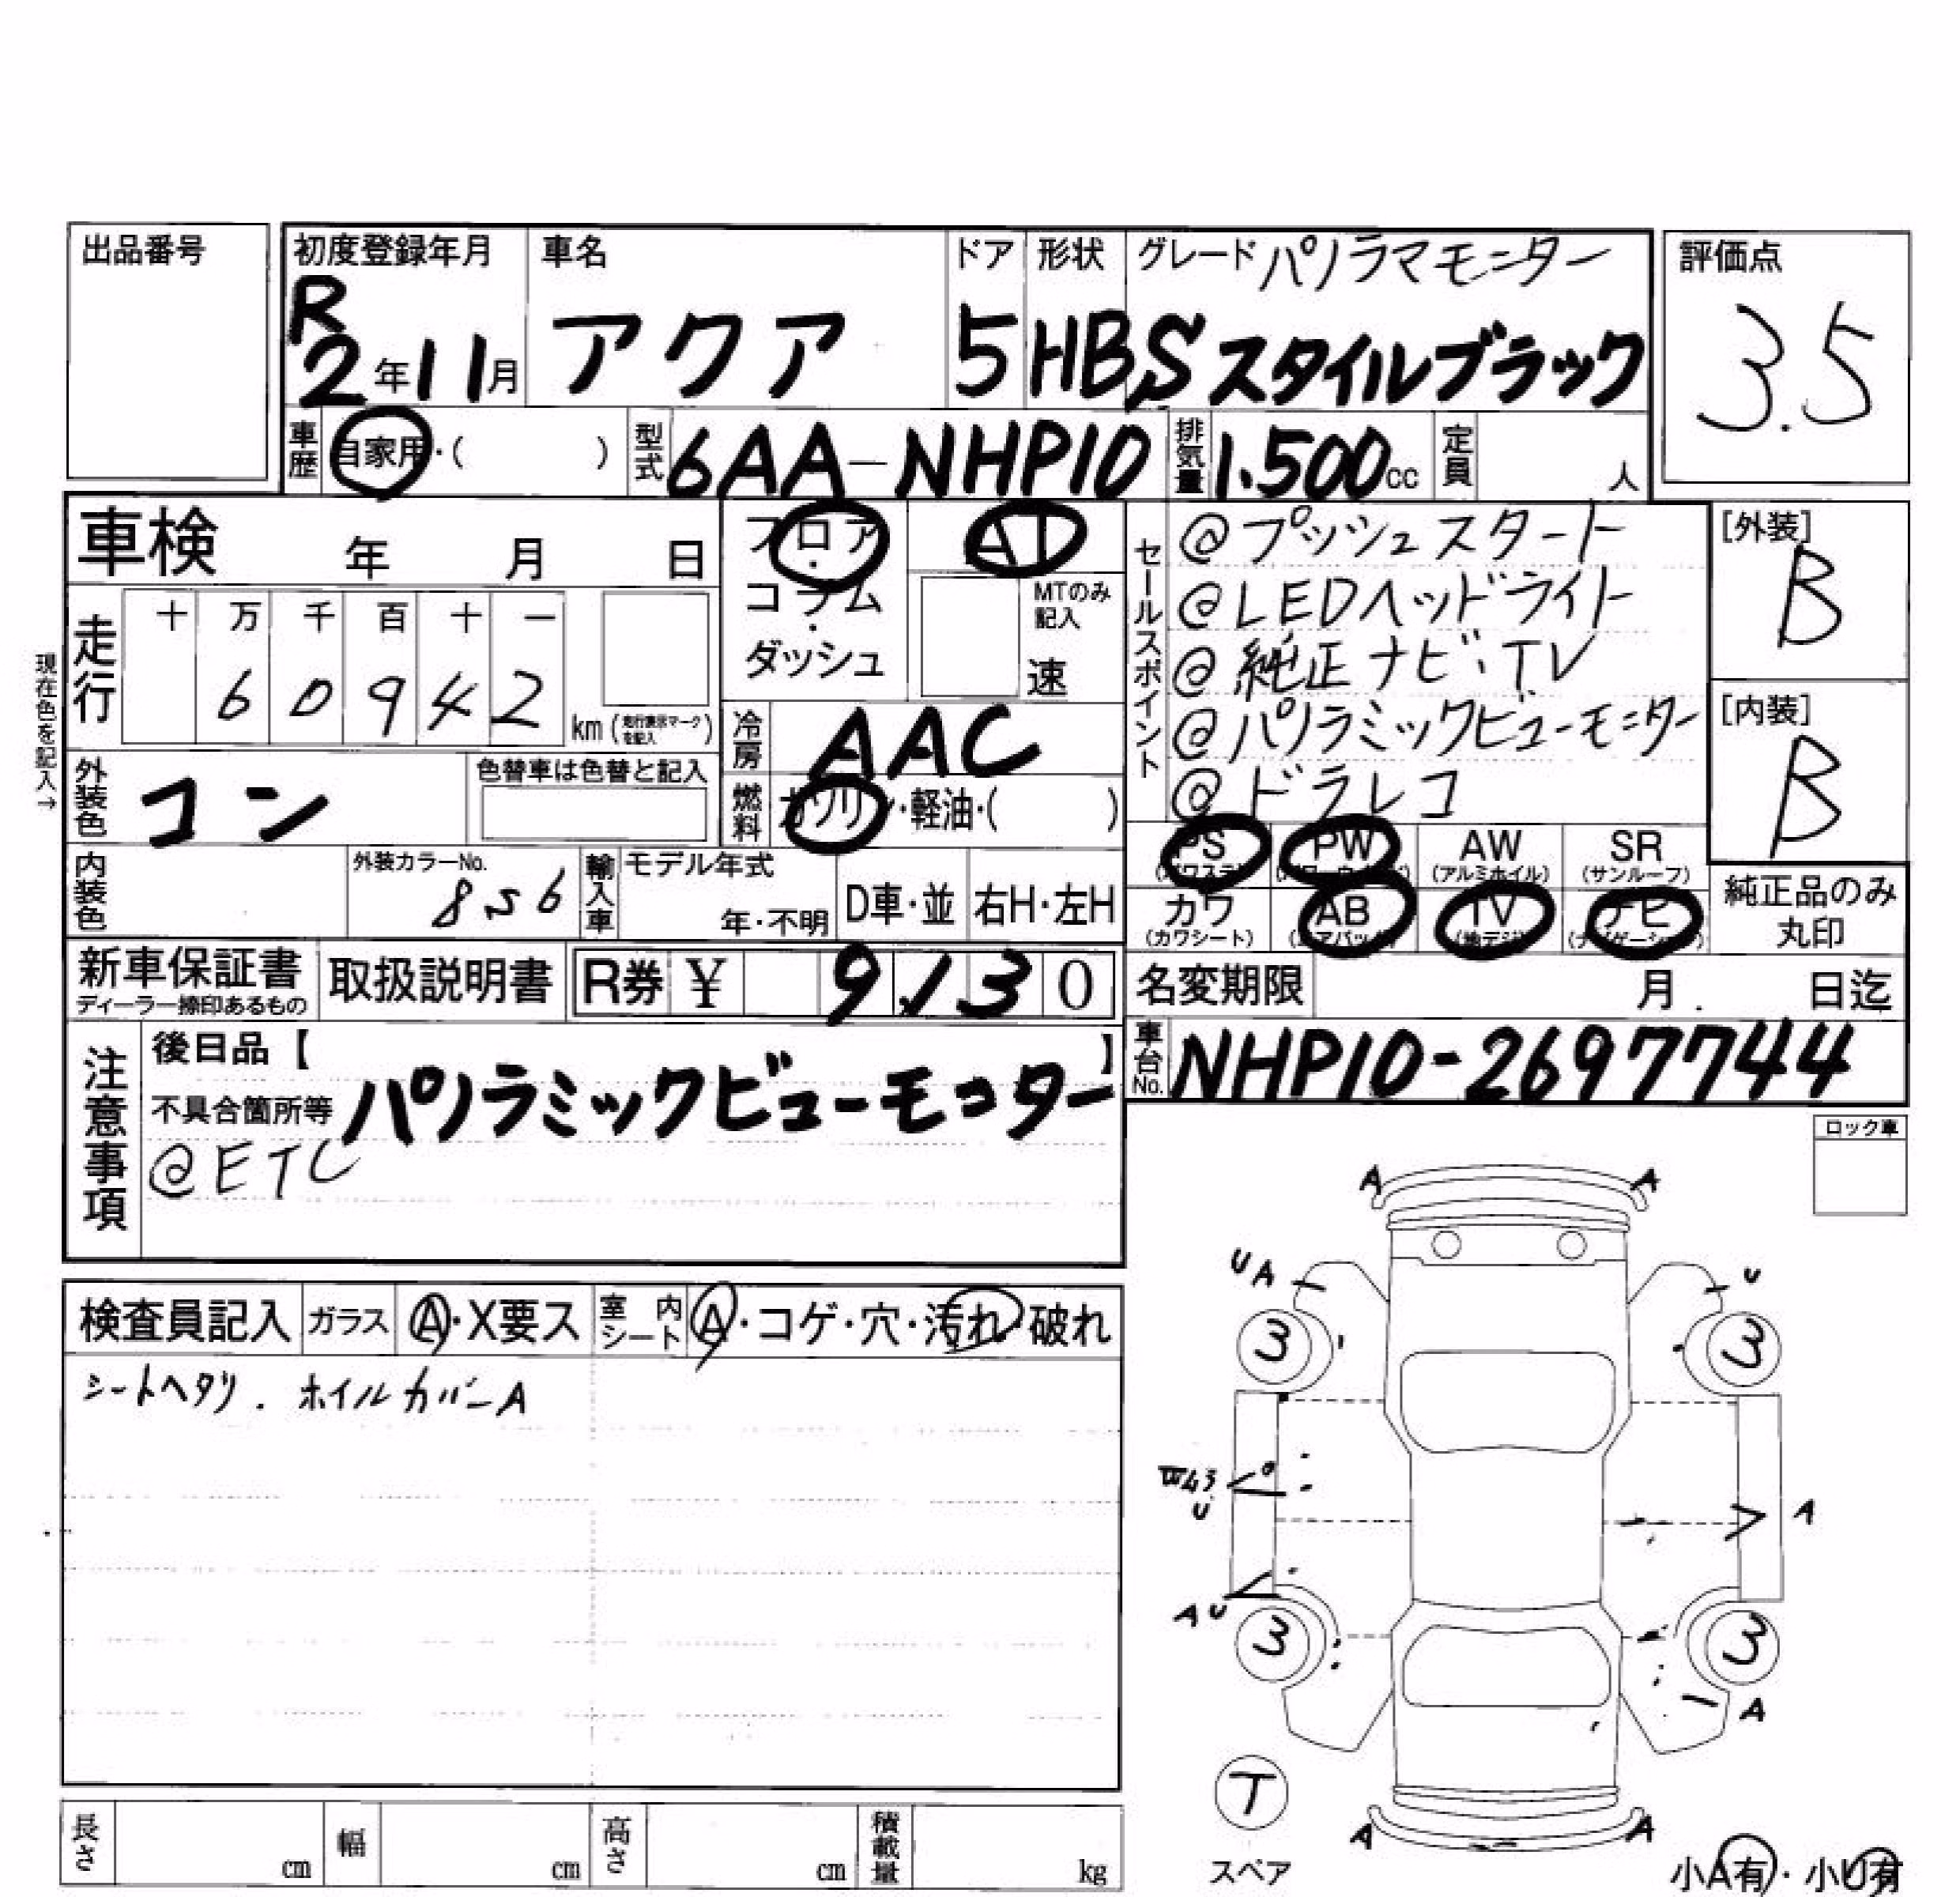 出品番号
初度登録年月 車名 ドア 形状 グレード パノラマモニター 評価点
R
2年11月 アクア 5 HB S スタイルブラック 3.5
車歴 自家用・( ) 型式 6AA-NHP10 排気量 1.500cc 定員 人
車検 年 月 日
フロア・コラム・ダッシュ AT
MTのみ記入 速
セールスポイント
@プッシュスタート
@LEDヘッドライト
@純正ナビ・TV
@パノラミックビューモニター
@ドラレコ
[外装] B
[内装] B
現在色を記入→
走行 十 万 千 百 十 一
6 0 9 4 2 km (走行表示マークを記入)
冷房 AAC
外装色 コン 色替車は色替と記入
燃料 ガソリン・軽油・( )
PS (パワステ) PW (パワーウィンド) AW (アルミホイル) SR (サンルーフ)
カワ (カワシート) AB (エアバッグ) TV (地デジ) ナビ (ナビゲーション)
純正品のみ丸印
内装色 外装カラーNo. 8S6 輸入車 モデル年式 年・不明 D車・並 右H・左H
新車保証書 ディーラー捺印あるもの 取扱説明書 R券 ¥ 9130
名変期限 月 日迄
車台No. NHP10-2697744
注意事項
後日品【 】
不具合箇所等 パノラミックビューモニター
@ETC
ロック車
検査員記入 ガラス A・X要ス 室内シート A・コゲ・穴・汚れ・破れ
シートヘタリ. ホイルカバーA
A A
UA U
3 3
W43
U
A
AU
3 3
A
T
スペア
A A
小A有・小U有
長さ cm 幅 cm 高さ cm 積載量 kg